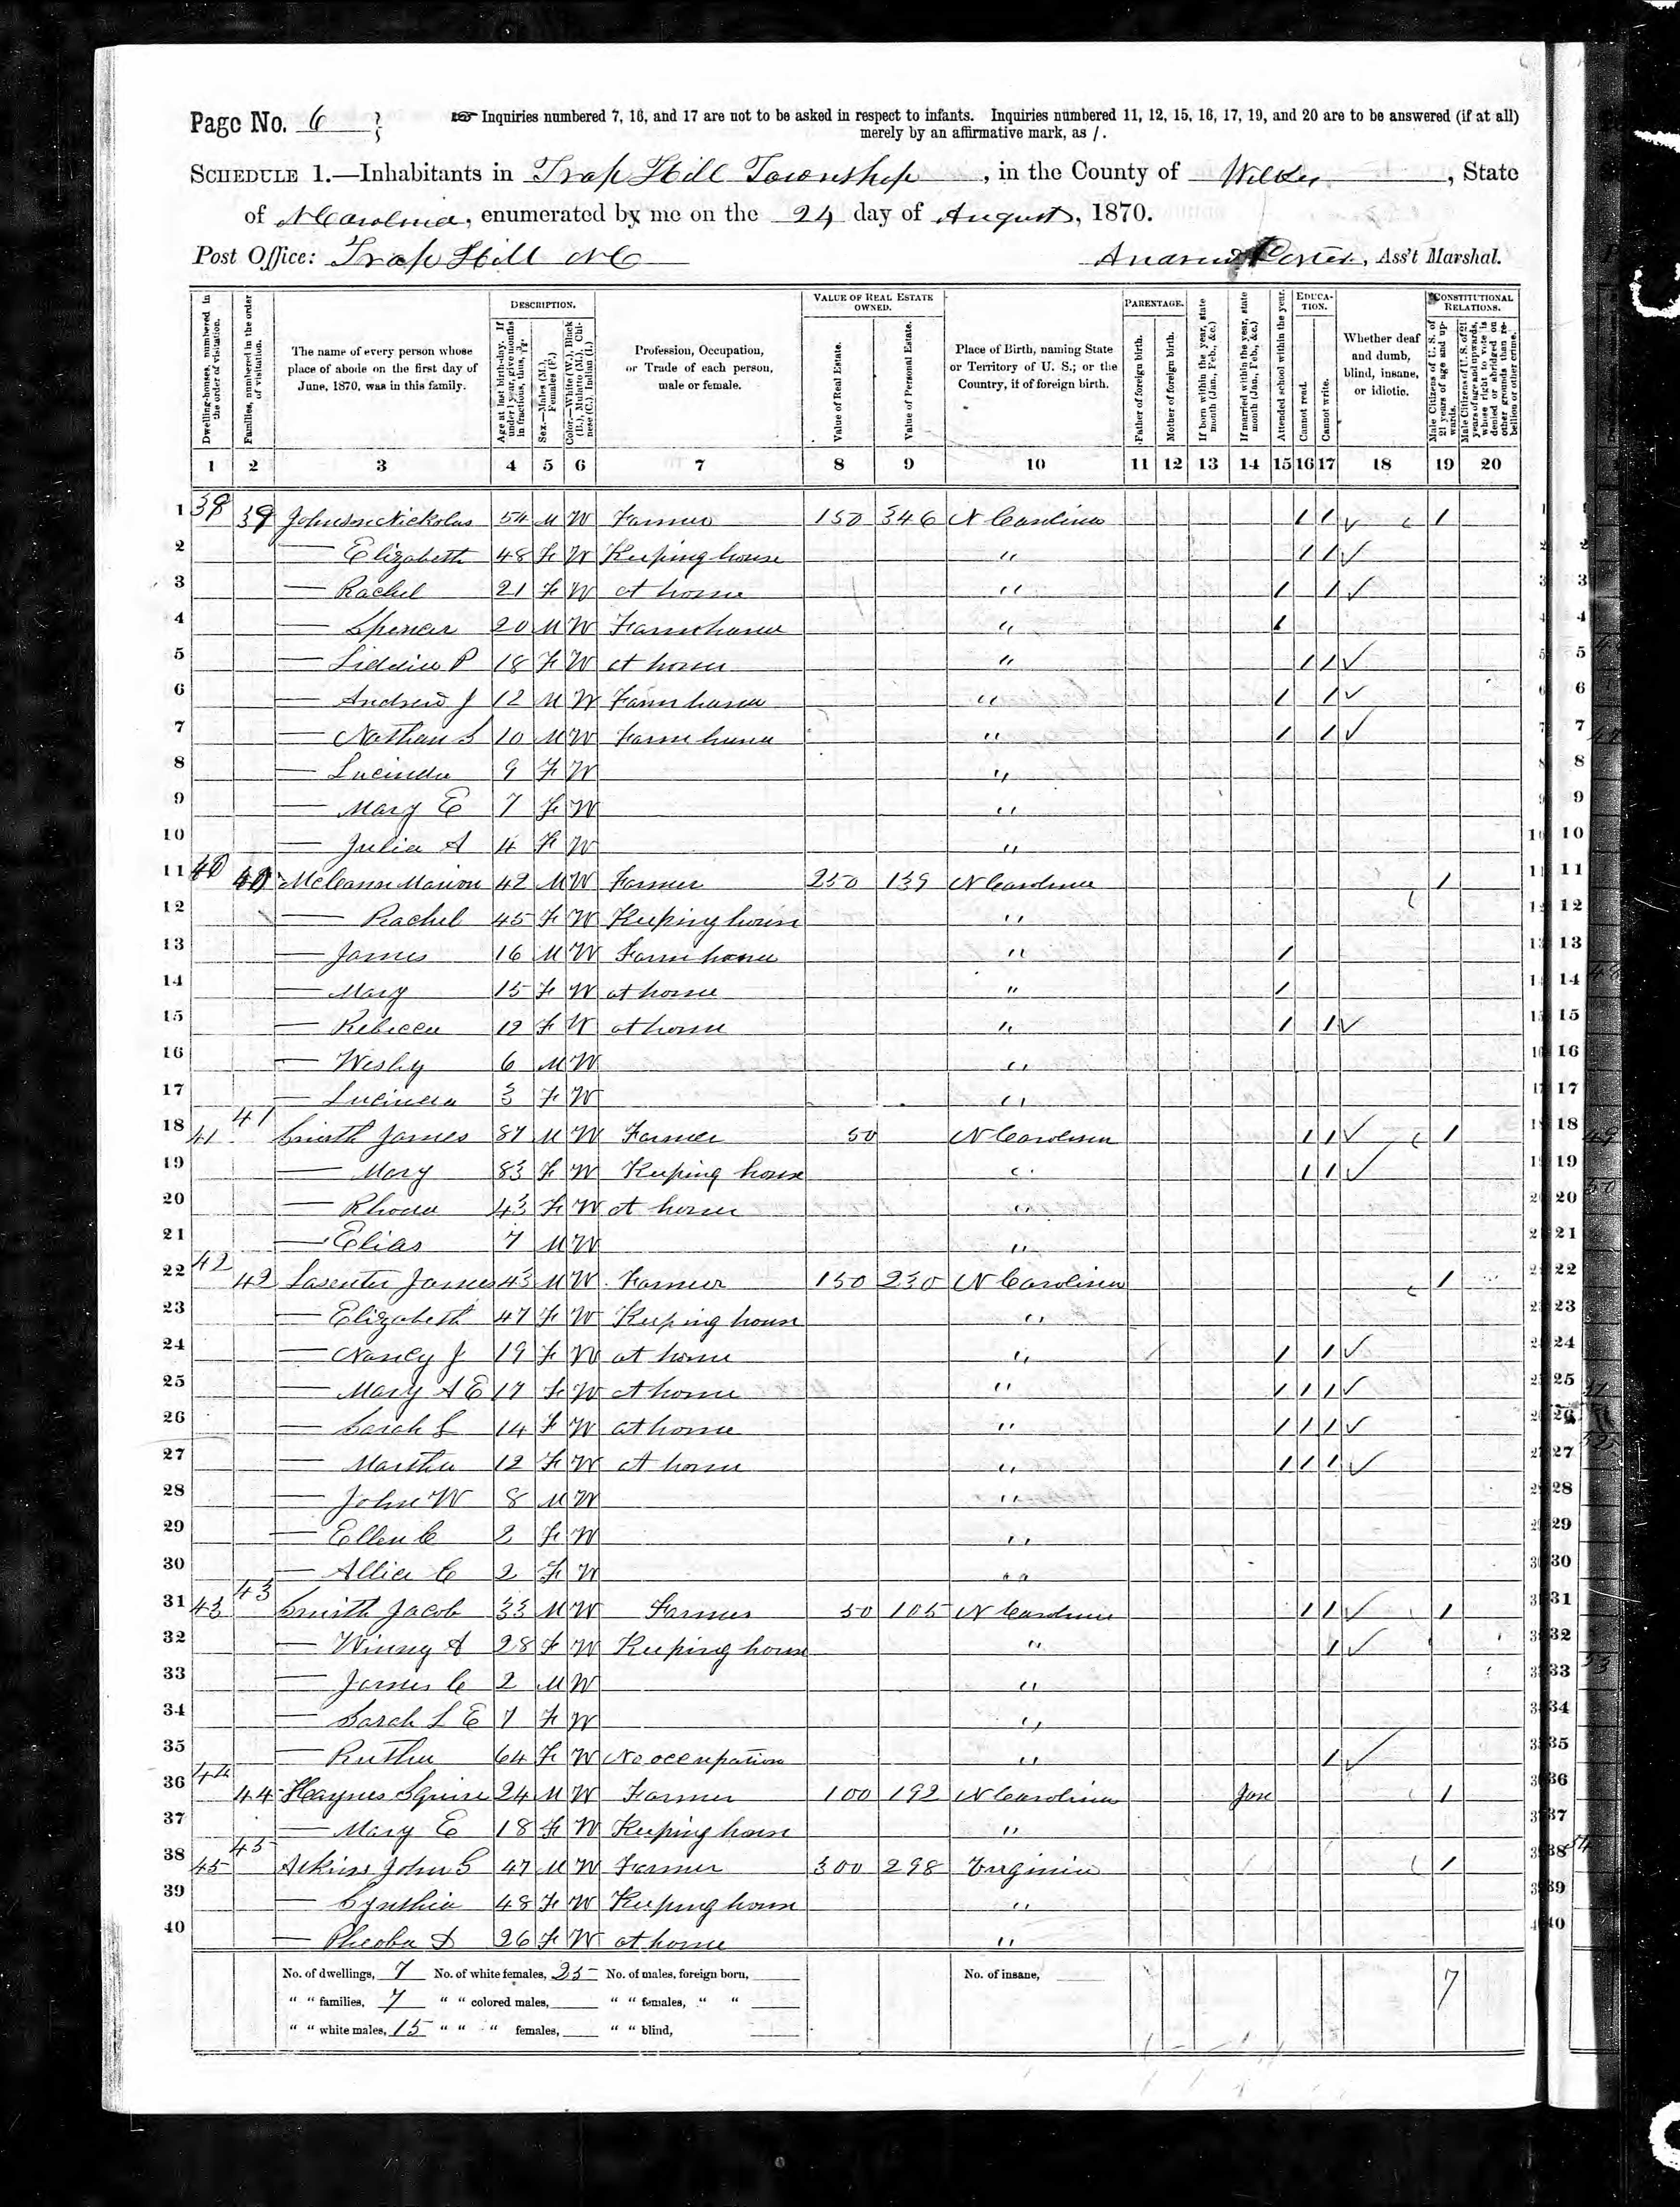 Page No. 6
☞ Inquiries numbered 7, 16, and 17 are not to be asked in respect to infants. Inquiries numbered 11, 12, 15, 16, 17, 19, and 20 are to be answered (if at all)
merely by an affirmative mark, as /.
SCHEDULE 1.—Inhabitants in Trap Hill Township, in the County of Wilkes, State
of N Carolina, enumerated by me on the 24 day of August, 1870.
Post Office: Trap Hill N C
Porter, Ass't Marshal.
Dwelling-houses, numbered in the order of visitation.
Families, numbered in the order of visitation.
The name of every person whose place of abode on the first day of June, 1870, was in this family.
DESCRIPTION.
Age at last birth-day. If under 1 year, give months in fractions, thus, 3/12.
Sex.—Males (M.), Females (F.)
Color.—White (W.), Black (B.), Mulatto (M.), Chinese (C.), Indian (I.)
Profession, Occupation, or Trade of each person, male or female.
VALUE OF REAL ESTATE OWNED.
Value of Real Estate.
Value of Personal Estate.
Place of Birth, naming State or Territory of U. S.; or the Country, if of foreign birth.
PARENTAGE.
Father of foreign birth.
Mother of foreign birth.
If born within the year, state month (Jan., Feb., &c.)
If married within the year, state month (Jan., Feb., &c.)
Attended school within the year.
EDUCATION.
Cannot read.
Cannot write.
Whether deaf and dumb, blind, insane, or idiotic.
CONSTITUTIONAL RELATIONS.
Male Citizens of U. S. of 21 years of age and upwards.
Male Citizens of U. S. of 21 years of age and upwards, whose right to vote is denied or abridged on other grounds than rebellion or other crime.
1 2 3 4 5 6 7 8 9 10 11 12 13 14 15 16 17 18 19 20
1 39 39 Johnson Nickolas 54 M W Farmer 150 346 N Carolina / / ✓ /
2 — Elizabeth 48 F W Keeping house " / / ✓
3 — Rachel 21 F W at home " / / ✓
4 — Spencer 20 M W Farmhand " /
5 — P 18 F W at home " / / ✓
6 — Andrew J 12 M W Farm hand " / / ✓
7 — Nathan S 10 M W Farm hand " / / ✓
8 — Lucinda 9 F W "
9 — Mary E 7 F W "
10 — Julia A 4 F W "
11 40 40 McCann Marion 42 M W Farmer 250 139 N Carolina /
12 — Rachel 45 F W Keeping house "
13 — James 16 M W Farm hand " /
14 — Mary 15 F W at home " /
15 — Rebecca 12 F W at home " / / ✓
16 — Wesly 6 M W "
17 — Lucinda 3 F W "
18 41 41 Smith James 87 M W Farmer 50 N Carolina / / ✓ /
19 — Mary 83 F W Keeping house " / / ✓
20 — Rhoda 43 F W at home "
21 — Elias 7 M W "
22 42 42 James 43 M W Farmer 150 230 N Carolina /
23 — Elizabeth 47 F W Keeping house "
24 — Nancy J 19 F W at home " / / ✓
25 — Mary A E 17 F W at home " / / / ✓
26 — Sarah L 14 F W at home " / / / ✓
27 — Martha 12 F W at home " / / / ✓
28 — John W 8 M W "
29 — Ellen C 2 F W "
30 — Allice C 2 F W "
31 43 43 Smith Jacob 33 M W Farmer 50 105 N Carolina / / ✓ /
32 — Winny A 28 F W Keeping house " / ✓
33 — James C 2 M W "
34 — Sarah L E 7 F W "
35 — Rutha 64 F W No occupation " / ✓
36 44 44 Haynes Squire 24 M W Farmer 100 192 N Carolina Jan /
37 — Mary E 18 F W Keeping house "
38 45 45 Adkins John S 47 M W Farmer 300 298 Virginia /
39 — Cynthia 48 F W Keeping house "
40 — Pheoba A 26 F W at home "
No. of dwellings, 7 No. of white females, 25 No. of males, foreign born, No. of insane, 7
" " families, 7 " " colored males, " " females, " "
" " white males, 15 " " " females, " " blind,